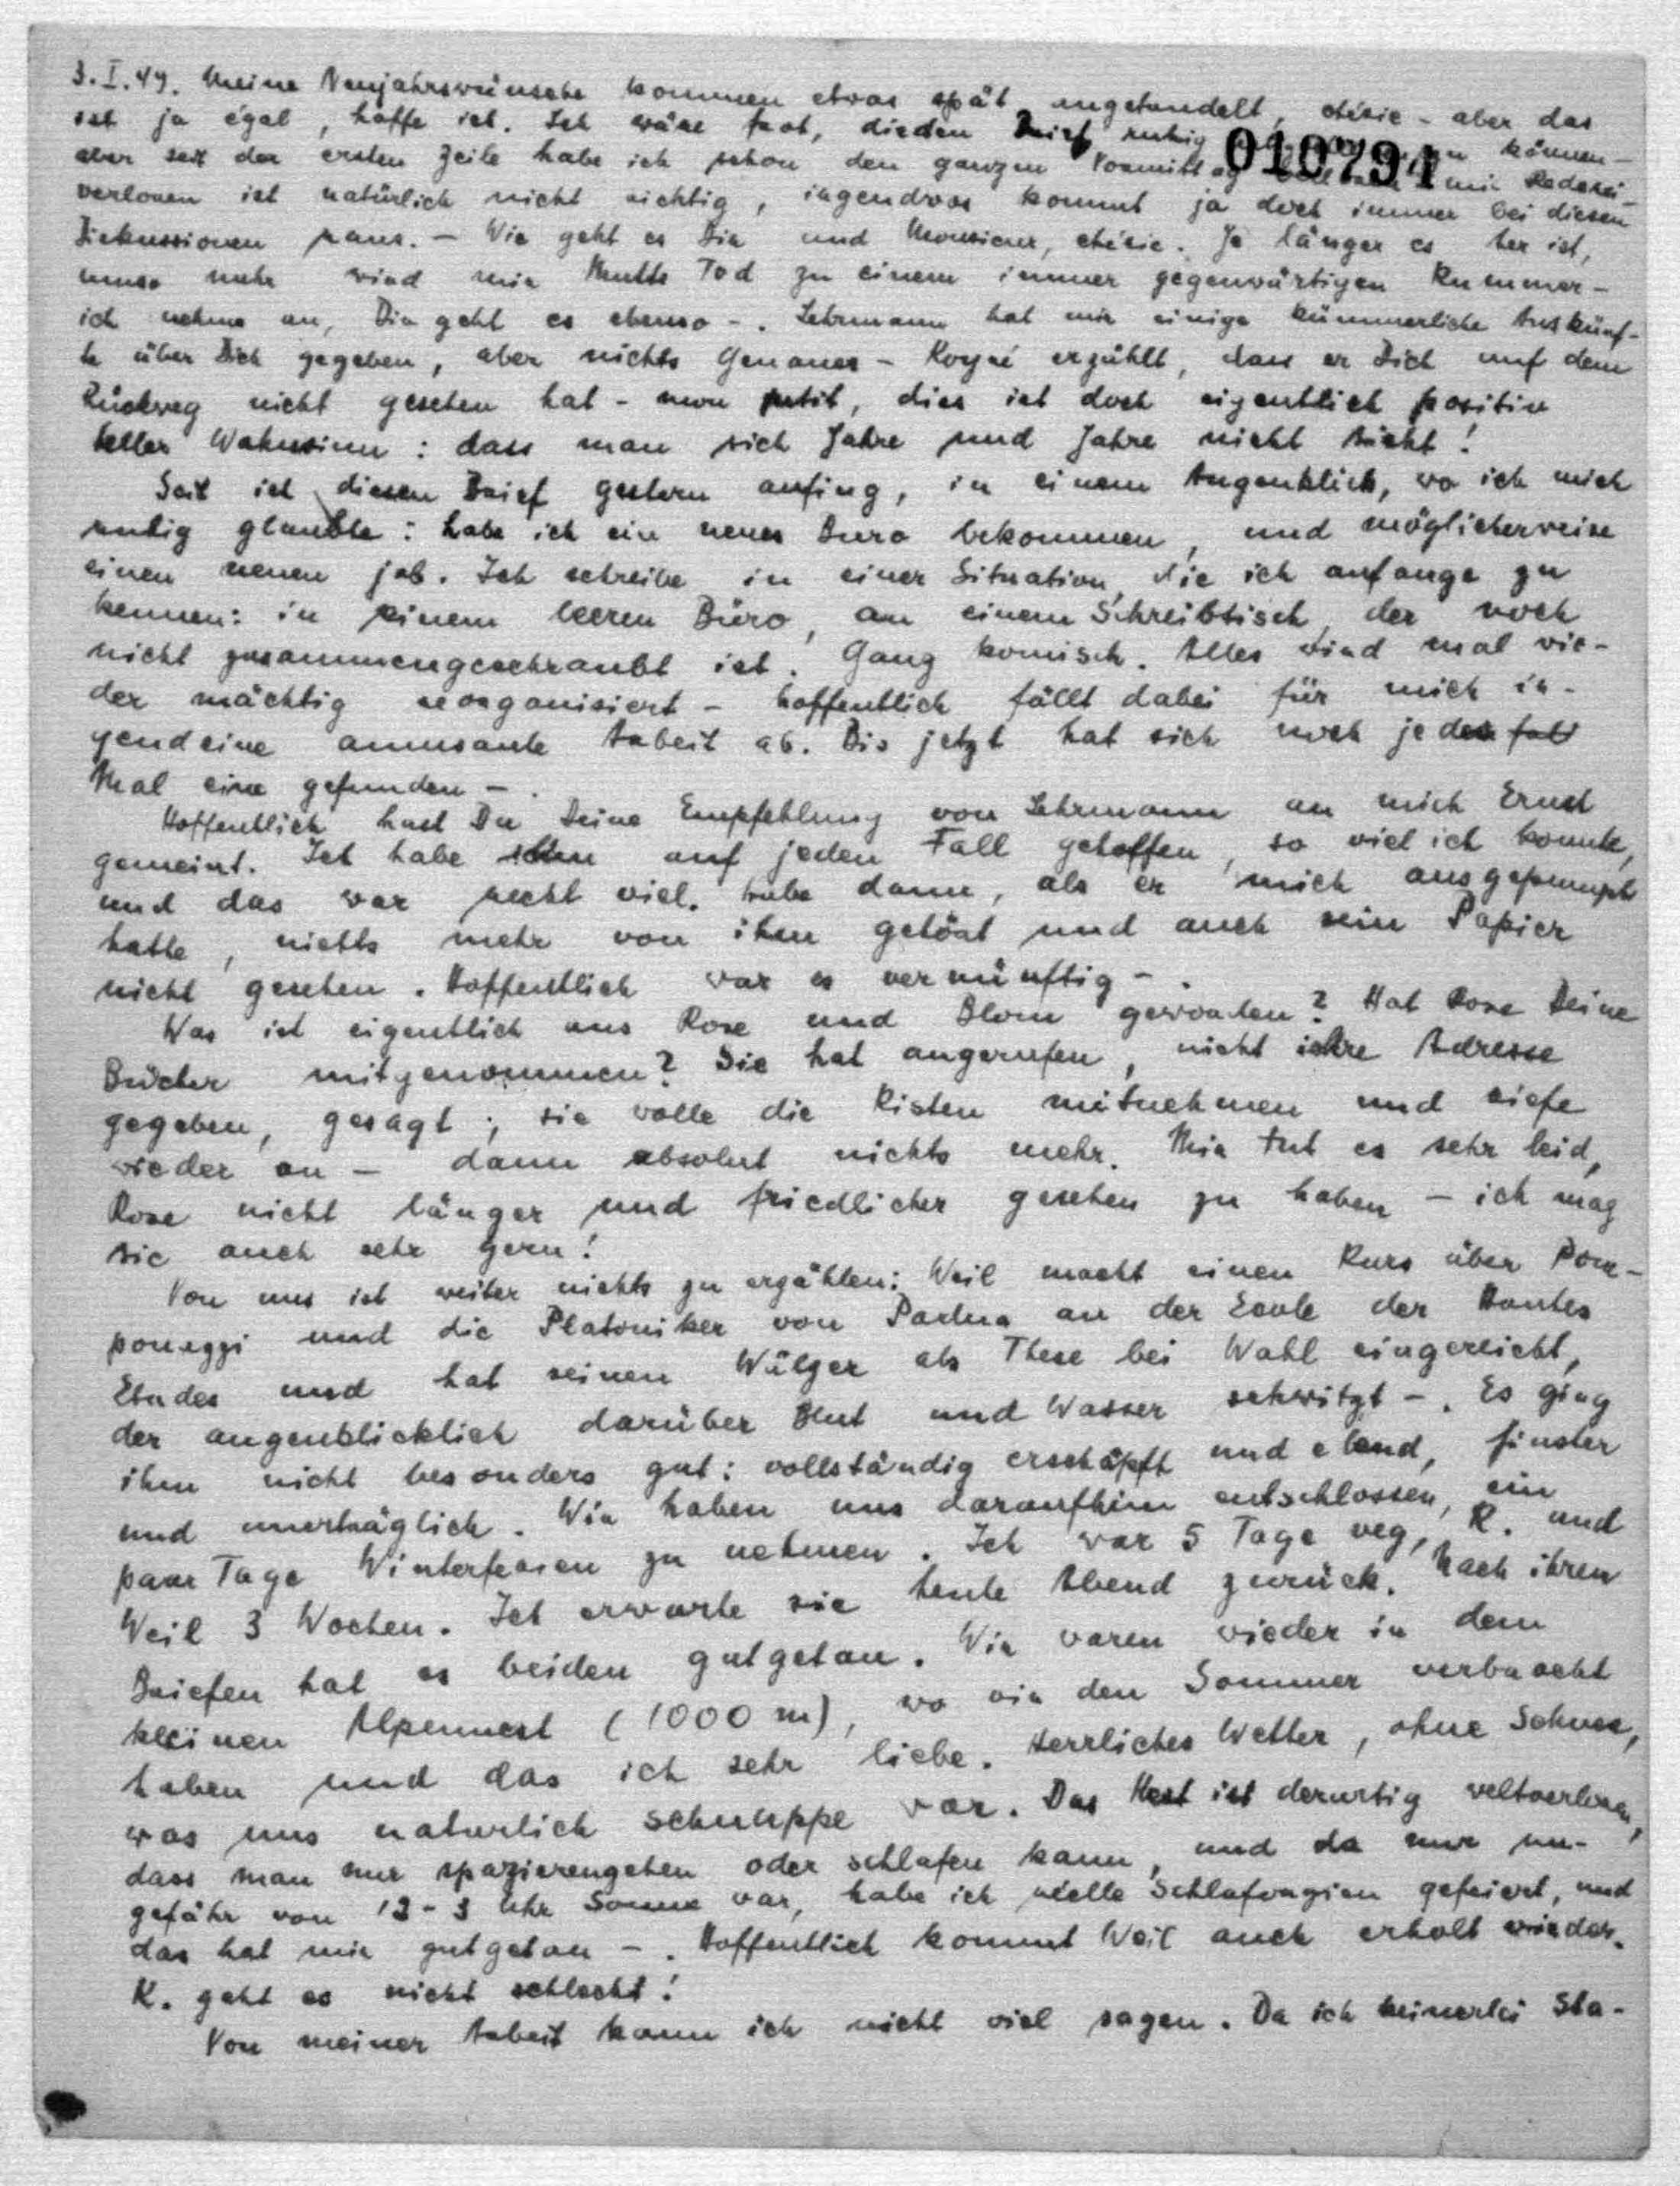 3.I.49. Meine Neujahrswünsche kommen etwas spät angetandelt, chérie - aber das
ist ja egal, hoffe ich. Ich wäre froh, diesen Brief ruhig können -
010791
aber seit der ersten Zeile habe ich schon den ganzen Vormittag mit Rederei -
verloren ist natürlich nicht richtig, irgendwas kommt ja doch immer bei diesen
Diskussionen raus. - Wie geht es Dir und Monsieur, chérie. Je länger es her ist,
umso mehr wird mir Mutts Tod zu einem immer gegenwärtigen Kummer -
ich nehme an, Dir geht es ebenso -. Lehrmann hat mir einige kümmerliche Auskünf-
te über Dich gegeben, aber nichts Genaues - Koyré erzählt, dass er Dich auf dem
Rückweg nicht gesehen hat - mon petit, dies ist doch eigentlich positiv
heller Wahnsinn: dass man sich Jahre und Jahre nicht sieht!
Seit ich diesen Brief gestern anfing, in einem Augenblick, wo ich mich
ruhig glaubte: habe ich ein neues Buro bekommen, und möglicherweise
einen neuen job. Ich schreibe in einer Situation, die ich anfange zu
kennen: in einem leeren Büro, an einem Schreibtisch, der noch
nicht zusammengeschraubt ist. Ganz komisch. Alles wird mal wie-
der mächtig reorganisiert - hoffentlich fällt dabei für mich ir-
gendeine amusante Arbeit ab. Bis jetzt hat sich noch jedes
Mal eine gefunden -.
Hoffentlich hast Du Deine Empfehlung von Lehrmann an mich Ernst
gemeint. Ich habe ihm auf jeden Fall geholfen, so viel ich konnte,
und das war recht viel. Habe dann, als er mich ausgepumpt
hatte, nichts mehr von ihm gehört und auch sein Papier
nicht gesehen. Hoffentlich war es vernünftig -.
Was ist eigentlich aus Rose und Blom geworden? Hat Rose Deine
Bücher mitgenommen? Sie hat angerufen, nicht ihre Adresse
gegeben, gesagt, sie wolle die Kisten mitnehmen und riefe
wieder an - dann absolut nichts mehr. Mir tut es sehr leid,
Rose nicht länger und friedlicher gesehen zu haben - ich mag
sie auch sehr gern!
Von uns ist weiter nichts zu erzählen: Weil macht einen Kurs über Pom-
ponazzi und die Platoniker von Padua an der Ecole der Hautes
Etudes und hat seinen Wälzer als These bei Wahl eingereicht,
der augenblicklich darüber Blut und Wasser schwitzt -. Es ging
ihm nicht besonders gut: vollständig erschöpft und elend, finster
und unerträglich. Wir haben uns daraufhin entschlossen, ein
paar Tage Winterferien zu nehmen. Ich war 5 Tage weg, K. und
Weil 3 Wochen. Ich erwarte sie heute Abend zurück. Nach ihren
Briefen hat es beiden gutgetan. Wir waren wieder in dem
kleinen Alpennest (1000 m), wo wir den Sommer verbracht
haben und das ich sehr liebe. Herrliches Wetter, ohne Schnee,
was uns naturlich schnuppe war. Das Nest ist derartig weltverloren,
dass man nur spazierengehen oder schlafen kann, und da nur un-
gefähr von 12-3 Uhr Sonne war, habe ich Schlaforgien gefeiert, und
das hat mir gutgetan -. Hoffentlich kommt Weil auch erholt wieder.
K. geht es nicht schlecht!
Von meiner Arbeit kann ich nicht viel sagen. Da ich keinerlei Sta-